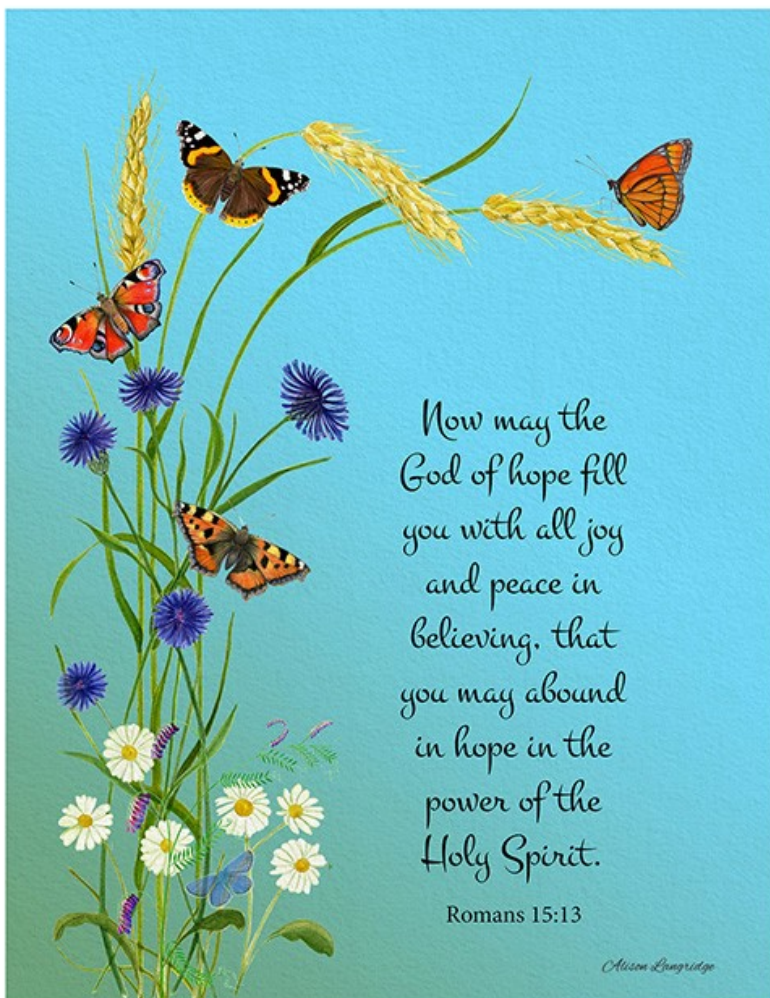 Now may the
God of hope fill
you with all joy
and peace in
believing, that
you may abound
in hope in the
power of the
Holy Spirit.
Romans 15:13
Alison Langridge